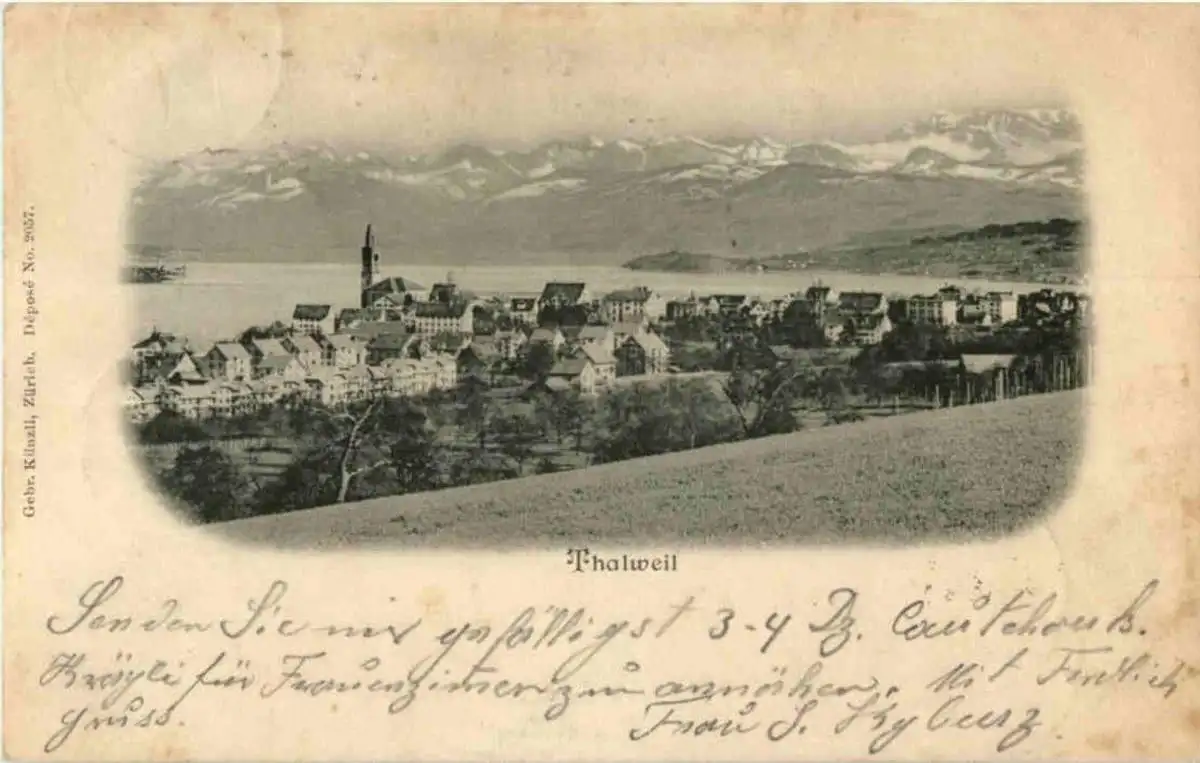 Gebr. Künzli, Zürich. Déposé No. 2057.
Thalweil
Senden Sie mir gefälligst 3-4 Dz. Cautchouk.
Krägli für Frauenzimer zum annähen. Mit
gruss. Frau S. Kyburz.